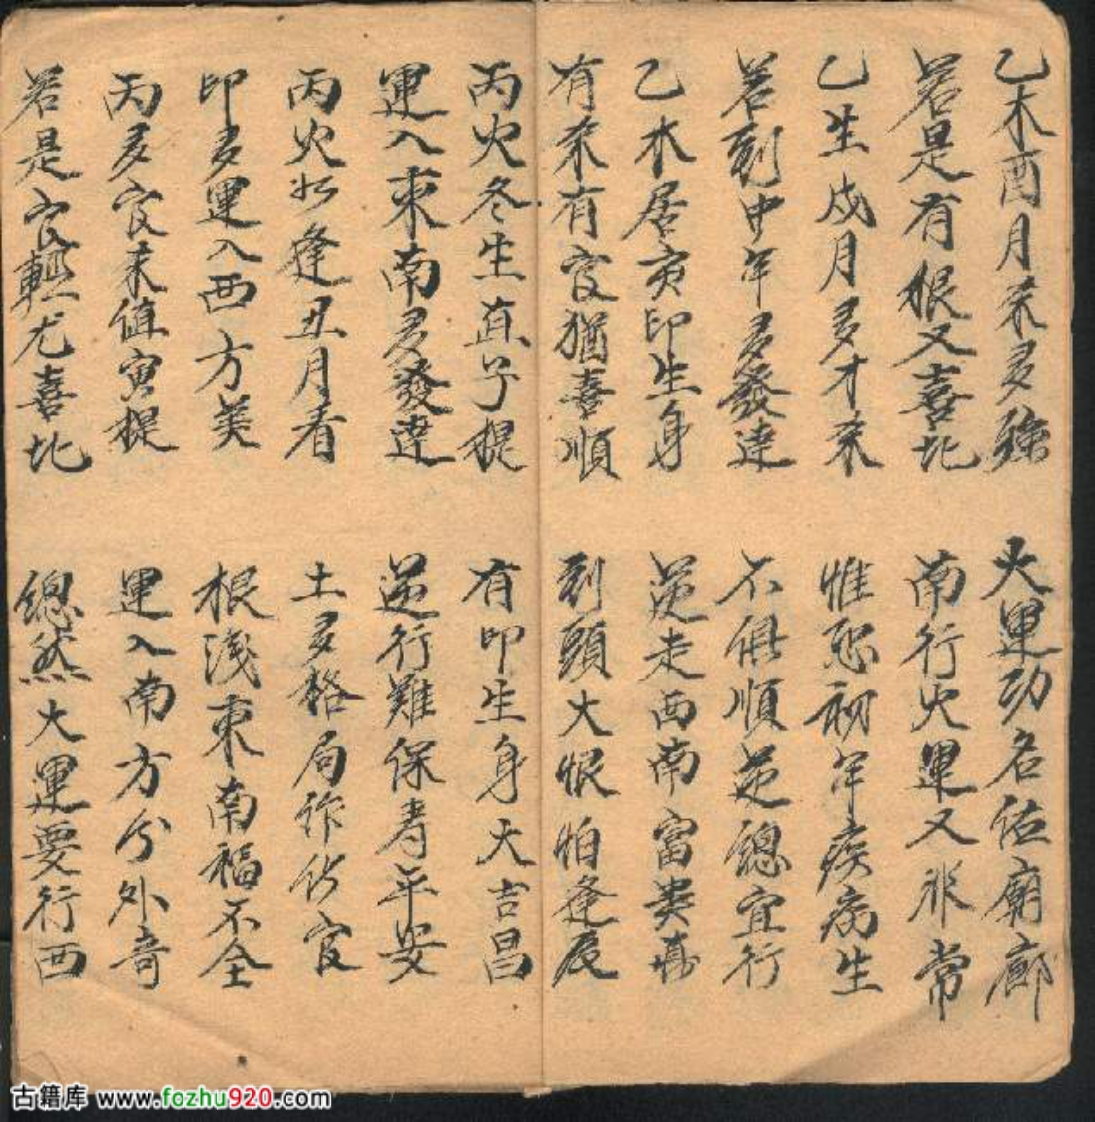 乙木酉月杀多強 大運功名佐廟廊
若是有根又喜比 南行火運又非常
乙生戌月多才杀 惟恐初年疾病生
若到中年多發達 不俱順逆總宜行
乙木居寅印生身 逆走西南富貴真
有杀有官猶喜順 到頭大恨怕逢辰
丙火冬生直子提 有印生身大吉昌
運入東南多發達 逆行難保寿平安
丙火如逢丑月看 土多格局作伤官
印多運入西方美 根淺東南福不全
丙多官杀值寅提 運入南方分外奇
若是官輕尤喜比 總然大運要行西
古籍库 www.fozhu920.com